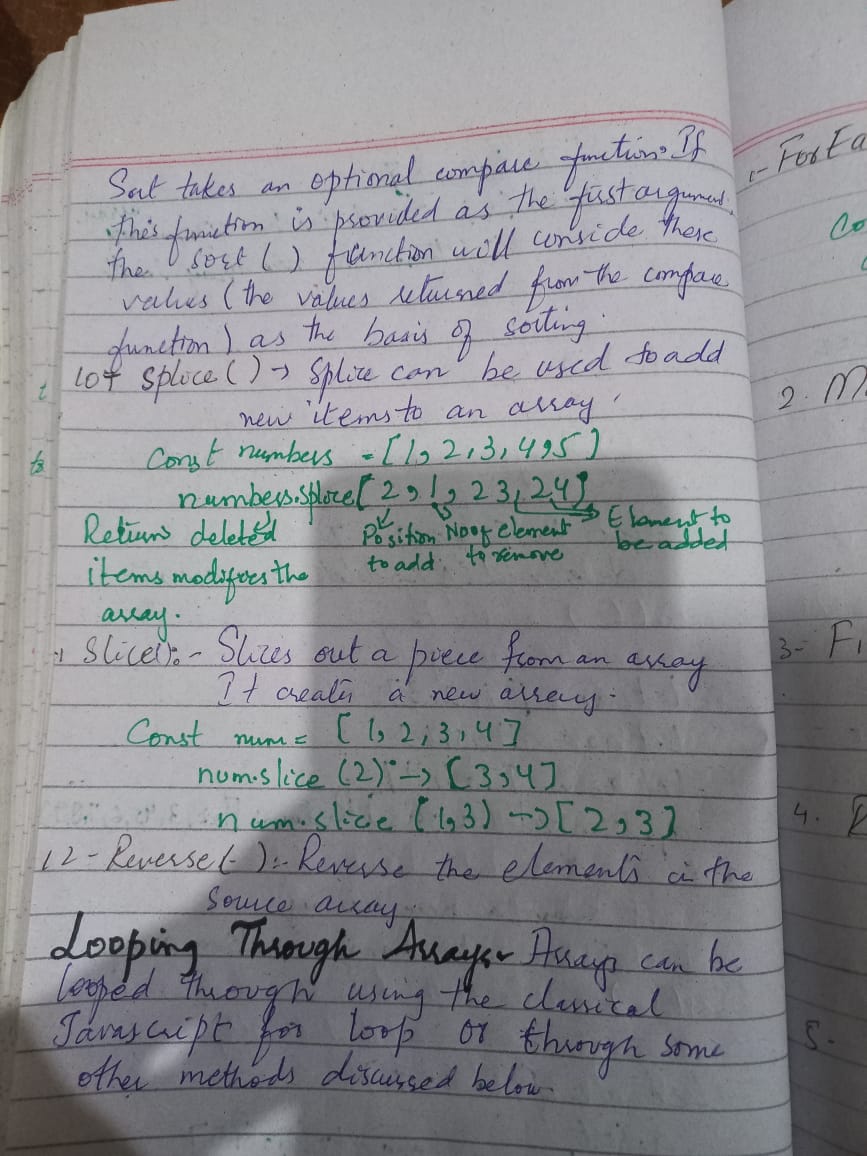 Sort takes an optional compare function. If
this function is provided as the first argument,
the sort ( ) function will conside these
values (the values returned from the compare
function) as the basis of sorting.
10+ Splice ( ) → Splice can be used to add
new items to an array.
Const numbers = [1, 2, 3, 4, 5]
numbers.splice( 2, 1, 23, 24)
Returns deleted
items modifies the
array.
Position to add
No of element to remove
Element to be added
Slice():- Slizes out a piece from an array
It creates a new array.
Const num = [ 1, 2, 3, 4 ]
num.slice (2) → [3, 4]
num.slice (1, 3) → [2, 3]
12 - Reverse( ):- Reverse the elements in the
source array.
Looping Through Arrays:- Arrays can be
looped through using the classical
Javascript for loop or through some
other methods discussed below.
1- For Ea
Co
2. M
3- Fi
4.
5-